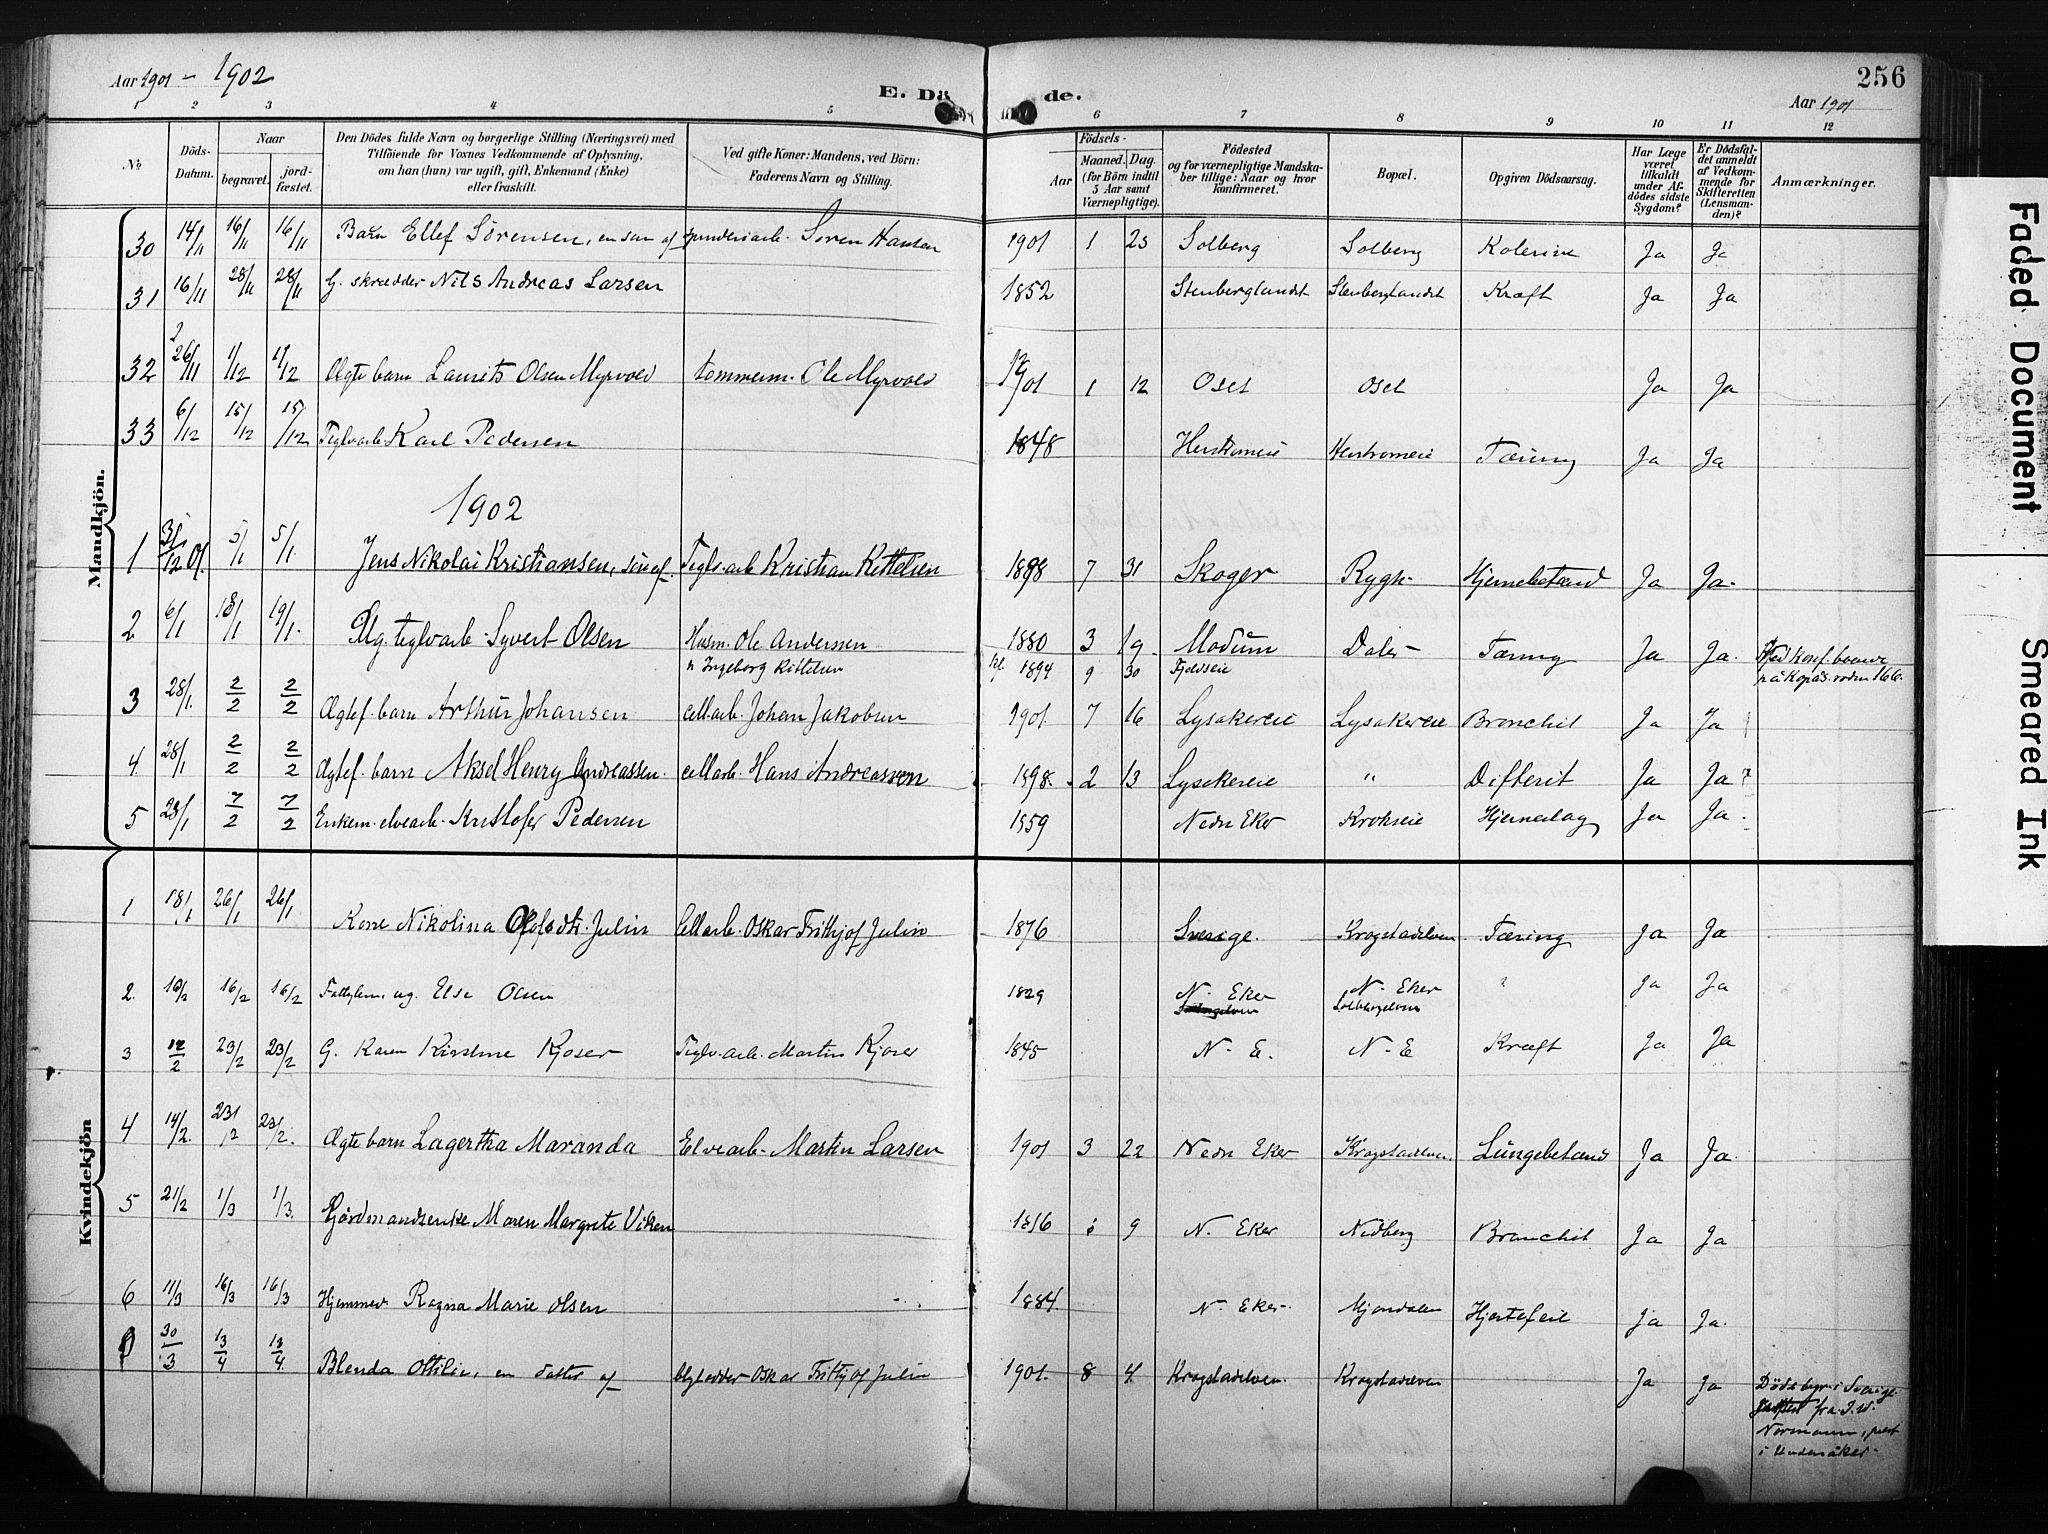 Aar 1901 - 1902
E. Dö de.
256
Aar 1901
1 2 3 4 5 6 7 8 9 10 11 12
No
Döds-Datum.
Naar
begravet.
jord-fæstet.
Den Dödes fulde Navn og borgerlige Stilling (Næringsvei) med
Tilföiende for Voxnes Vedkommende af Oplysning,
om han (hun) var ugift, gift, Enkemand (Enke)
eller fraskilt.
Ved gifte Koner: Mandens, ved Börn:
Faderens Navn og Stilling.
Födsels-
Aar
Maaned. Dag.
(for Börn indtil
5 Aar samt
Værnepligtige).
Födested
og for værnepligtige Mandska-
ber tillige: Naar og hvor
konfirmeret.
Bopæl.
Opgiven Dödsaarsag.
Har Læge
været
tilkaldt
under Af-
dödes sidste
Sygdom?
Er Dödsfal-
det anmeldt
af Vedkom-
mende for
Skifteretten
(Lensman-
den)?
Anmærkninger.
Mandkjön.
30 14/11 16/11 16/11 Barn Ellef Sörensen, en sön af Sören Hansen 1901 1 23 Solberg Solberg Kolerine Ja Ja
31 16/11 28/11 28/11 G. skrædder Nils Andreas Larsen 1852 Stenberglandet Stenberglandet Kræft Ja Ja
32 26/11 1/12 1/12 Ægte barn Laurits Olsen Myrvold tömmerm. Ole Myrvold 1901 1 12 Oset Oset Ja Ja
33 6/12 15/12 15/12 Teglvarb Karl Pedersen 1848 Herstromeie Herstromeie Tæring Ja Ja
1902
1 31/12 01. 5/1 5/1. Jens Nikolai Kristiansen, sön af Teglv.arb Kristian Kittelsen 1898 7 31 Skoger Rygh- Hjernebetænd Ja Ja.
2 6/1 18/1 19/1. Ug. teglvarb. Syvert Olsen Husm. Ole Andersen 1880 3 19. Modum Daler Tæring Ja Ja.
n Ingeborg Kittelsen 1894 9 30 Fjeldseie
3 28/1. 2/2 2/2 Ægtef. barn Arthur Johansen cellarb. Johan Jakobsen 1901. 7 16 Lysakereie Lysakereie Bronchit Ja Ja
4 28/1 2/2 2/2 Ægtef. barn Aksel Henry Andreassen. cellarb. Hans Andreassen 1898. 2 13 Lysakereie " Difterit Ja Ja
5 28/1 7/2 7/2 Enkem. elvearb. Kristofer Pedersen 1859 Nedre Eker Krokseie Hjerneslag Ja Ja.
Kvindekjön
1 18/1 26/1 26/1 Kone Nikolina Olofsdtr. Julin Cellarb. Oskar Frithjof Julin 1876 Sverige. Krogstadelven Tæring Ja Ja
2. 10/2 16/2 16/2 Fattiglem, ug. Else Olsen 1829 N. Eker N. Eker Ja Ja
Solbergelven
3 12/2 23/2 23/2 G. Karen Kirstine Kjöser Teglv.arb. Martin Kjöser 1845 N. E. N. E Kræft Ja Ja
4 14/2. 23/2 23/2. Ægte barn Lagertha Maranda Elvearb. Martin Larsen 1901 3 22 Nedre Eker Krogstadelven. Lungebetænd Ja Ja.
5 21/2 1/3 1/3. Gårdmandsenke Maren Margrete Viken 1816 9 N. Eker Nedberg Bronchit Ja Ja
6 11/3 16/3 16/3 Hjemmev. Ragna Marie Olsen 1884. N. Eker. Mjöndalen Hjertefeil Ja Ja.
30/3 13/4 13/4. Blenda Ottilie, en datter af Oskar Frithjof Julin 1901. 8 4. Krogstadelven. Krogstadelven Ja Ja Döds begr. i Sverige.
fra J. W.
Normann, prest
i Undersåker.
Faded Document
Smeared Ink